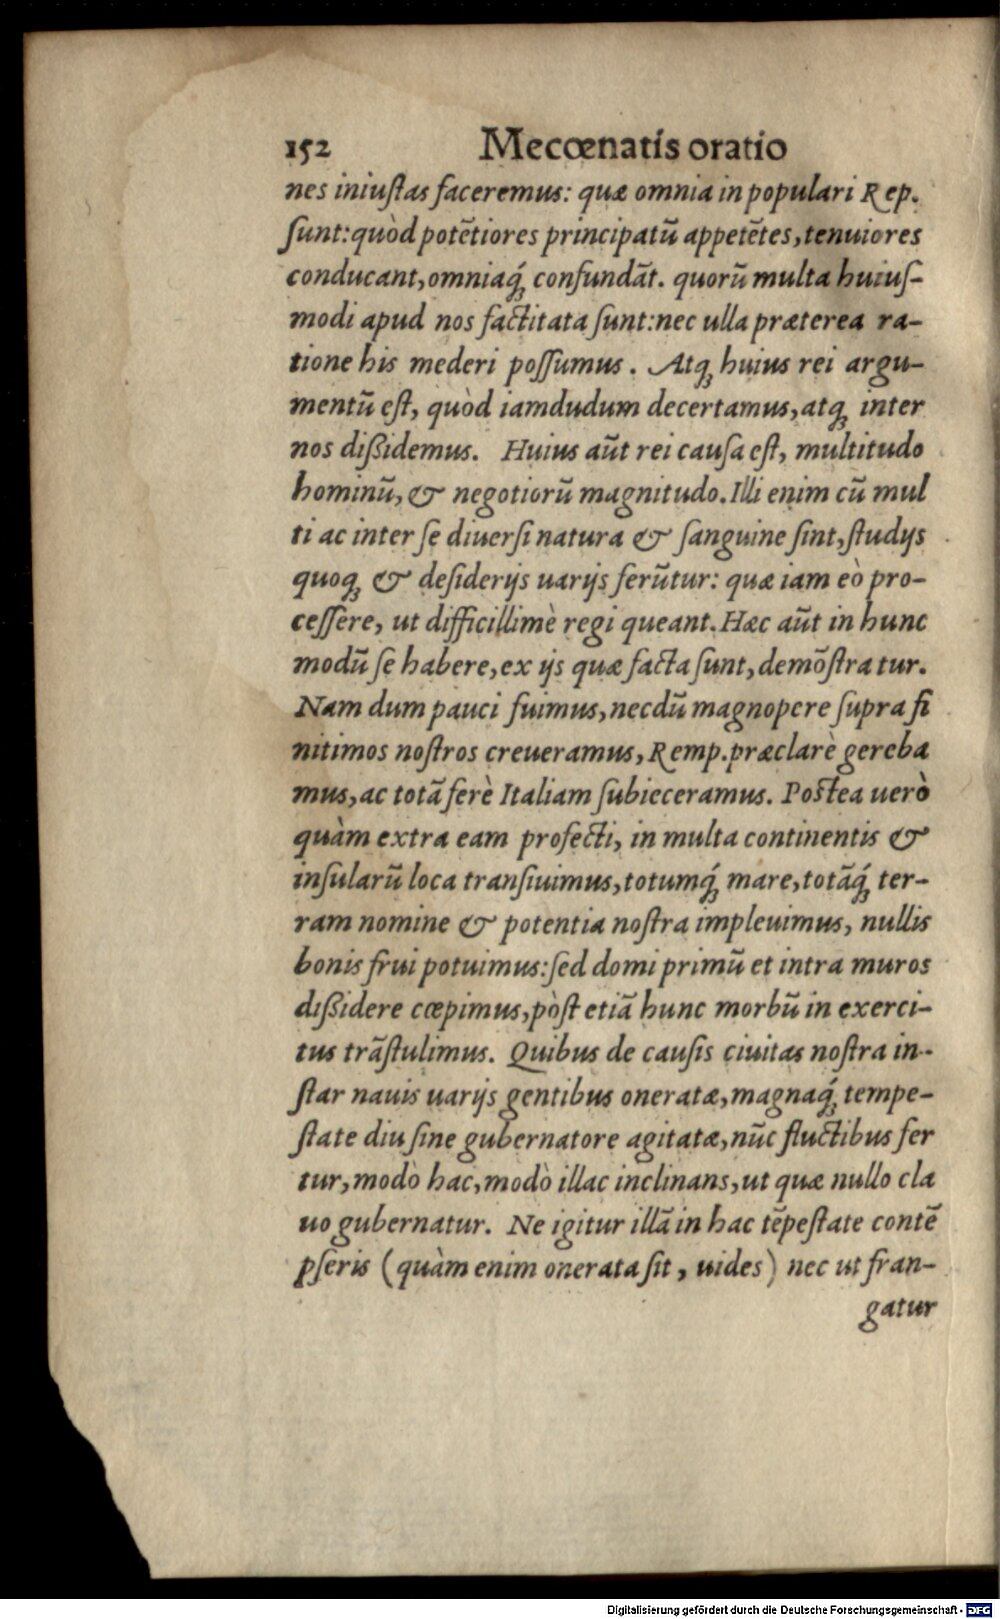 152 Mecœnatis oratio
nes iniuſtas faceremus: quæ omnia in populari Rep.
ſunt: quòd potẽtiores principatũ appetẽtes, tenuiores
conducant, omniaq́; confundãt. quorũ multa huiuſ-
modi apud nos factitata ſunt: nec ulla præterea ra-
tione his mederi poſſumus. Atq; huius rei argu-
mentũ eſt, quòd iamdudum decertamus, atq; inter
nos dißidemus. Huius aũt rei cauſa eſt, multitudo
hominũ, & negotiorũ magnitudo. Illi enim cũ mul
ti ac inter ſe diuerſi natura & ſanguine ſint, ſtudijs
quoq; & deſiderijs uarijs ferũtur: quæ iam eò pro-
ceſſere, ut difficillimè regi queant. Hæc aũt in hunc
modũ ſe habere, ex ijs quæ facta ſunt, demõſtratur.
Nam dum pauci fuimus, necdũ magnopere ſupra fi
nitimos noſtros creueramus, Remp. præclarè gereba
mus, ac totã ferè Italiam ſubieceramus. Poſtea uerò
quàm extra eam profecti, in multa continentis &
inſularũ loca tranſiuimus, totumq́; mare, totãq́; ter-
ram nomine & potentia noſtra impleuimus, nullis
bonis frui potuimus: ſed domi primũ et intra muros
dißidere cœpimus, pòſt etiã hunc morbũ in exerci-
tus trãſtulimus. Quibus de cauſis ciuitas noſtra in-
ſtar nauis uarijs gentibus oneratæ, magnaq́; tempe-
ſtate diu ſine gubernatore agitatæ, nũc fluctibus fer
tur, modò hac, modò illac inclinans, ut quæ nullo cla
uo gubernatur. Ne igitur illã in hac tẽpeſtate contẽ
pſeris (quàm enim onerata ſit, uides) nec ut fran-
gatur
Digitalisierung gefördert durch die Deutsche Forschungsgemeinschaft - DFG